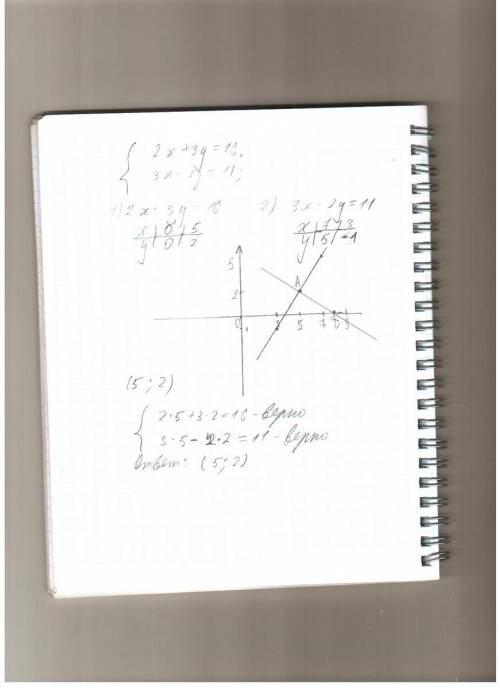 2x+3y=16,
3x-2y=11;
1) 2x+3y=16 2) 3x-2y=11
x 8 5 x 7 3
y 0 2 y 5 -1
5
A
2
0 1 3 5 7 8 9
(5;2)
2·5+3·2=16-верно
3·5-2·2=11-верно
Ответ: (5;2)